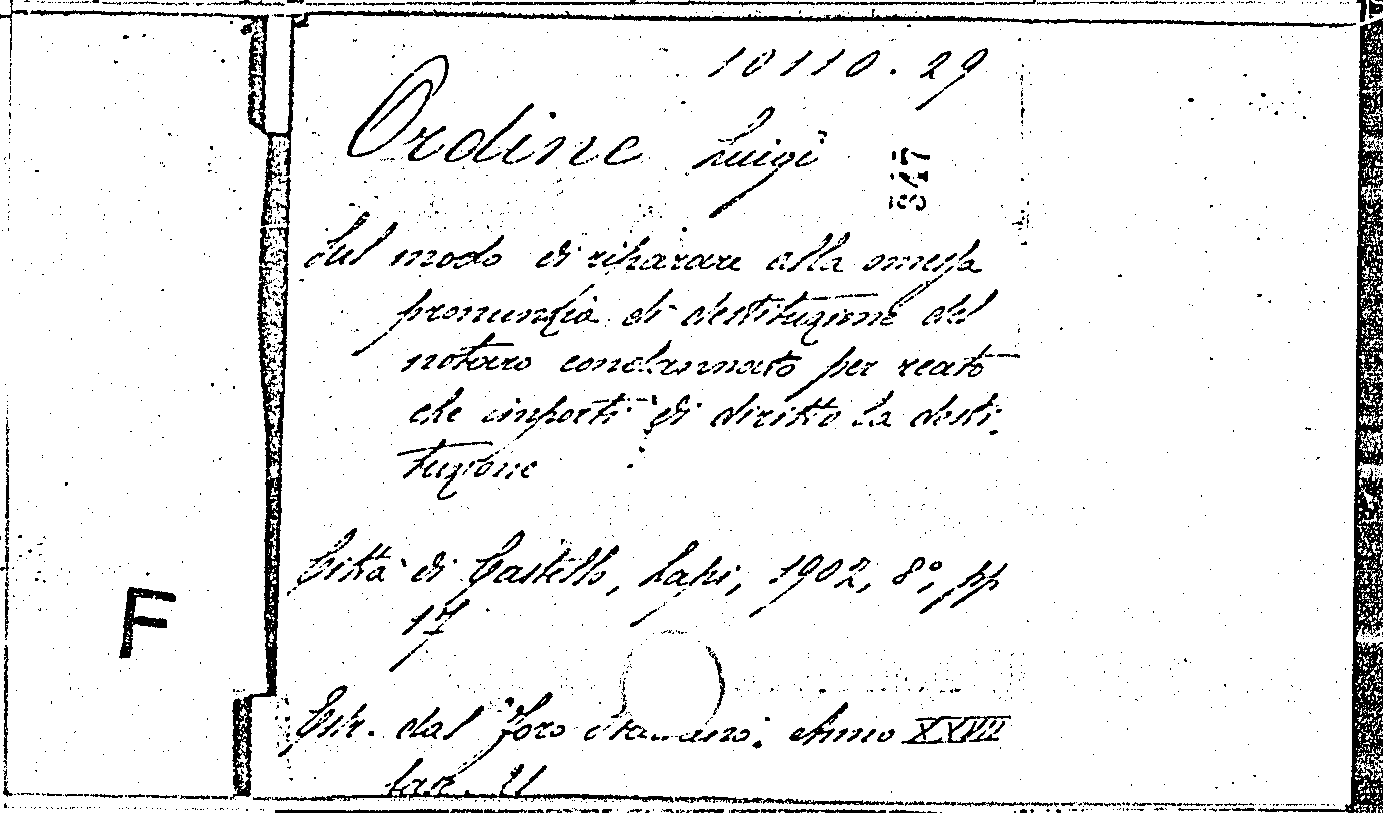 10110.29
Ordine Luigi
847
Sul modo di riparare alla omessa
pronunzia di destituzione del
notaro condannato per reato
che importi di diritto la desti-
tuzione
Città di Castello, Lapi, 1902, 8°, pp
17
F
Estr. dal "Foro Italiano". Anno XXVII
fasc.